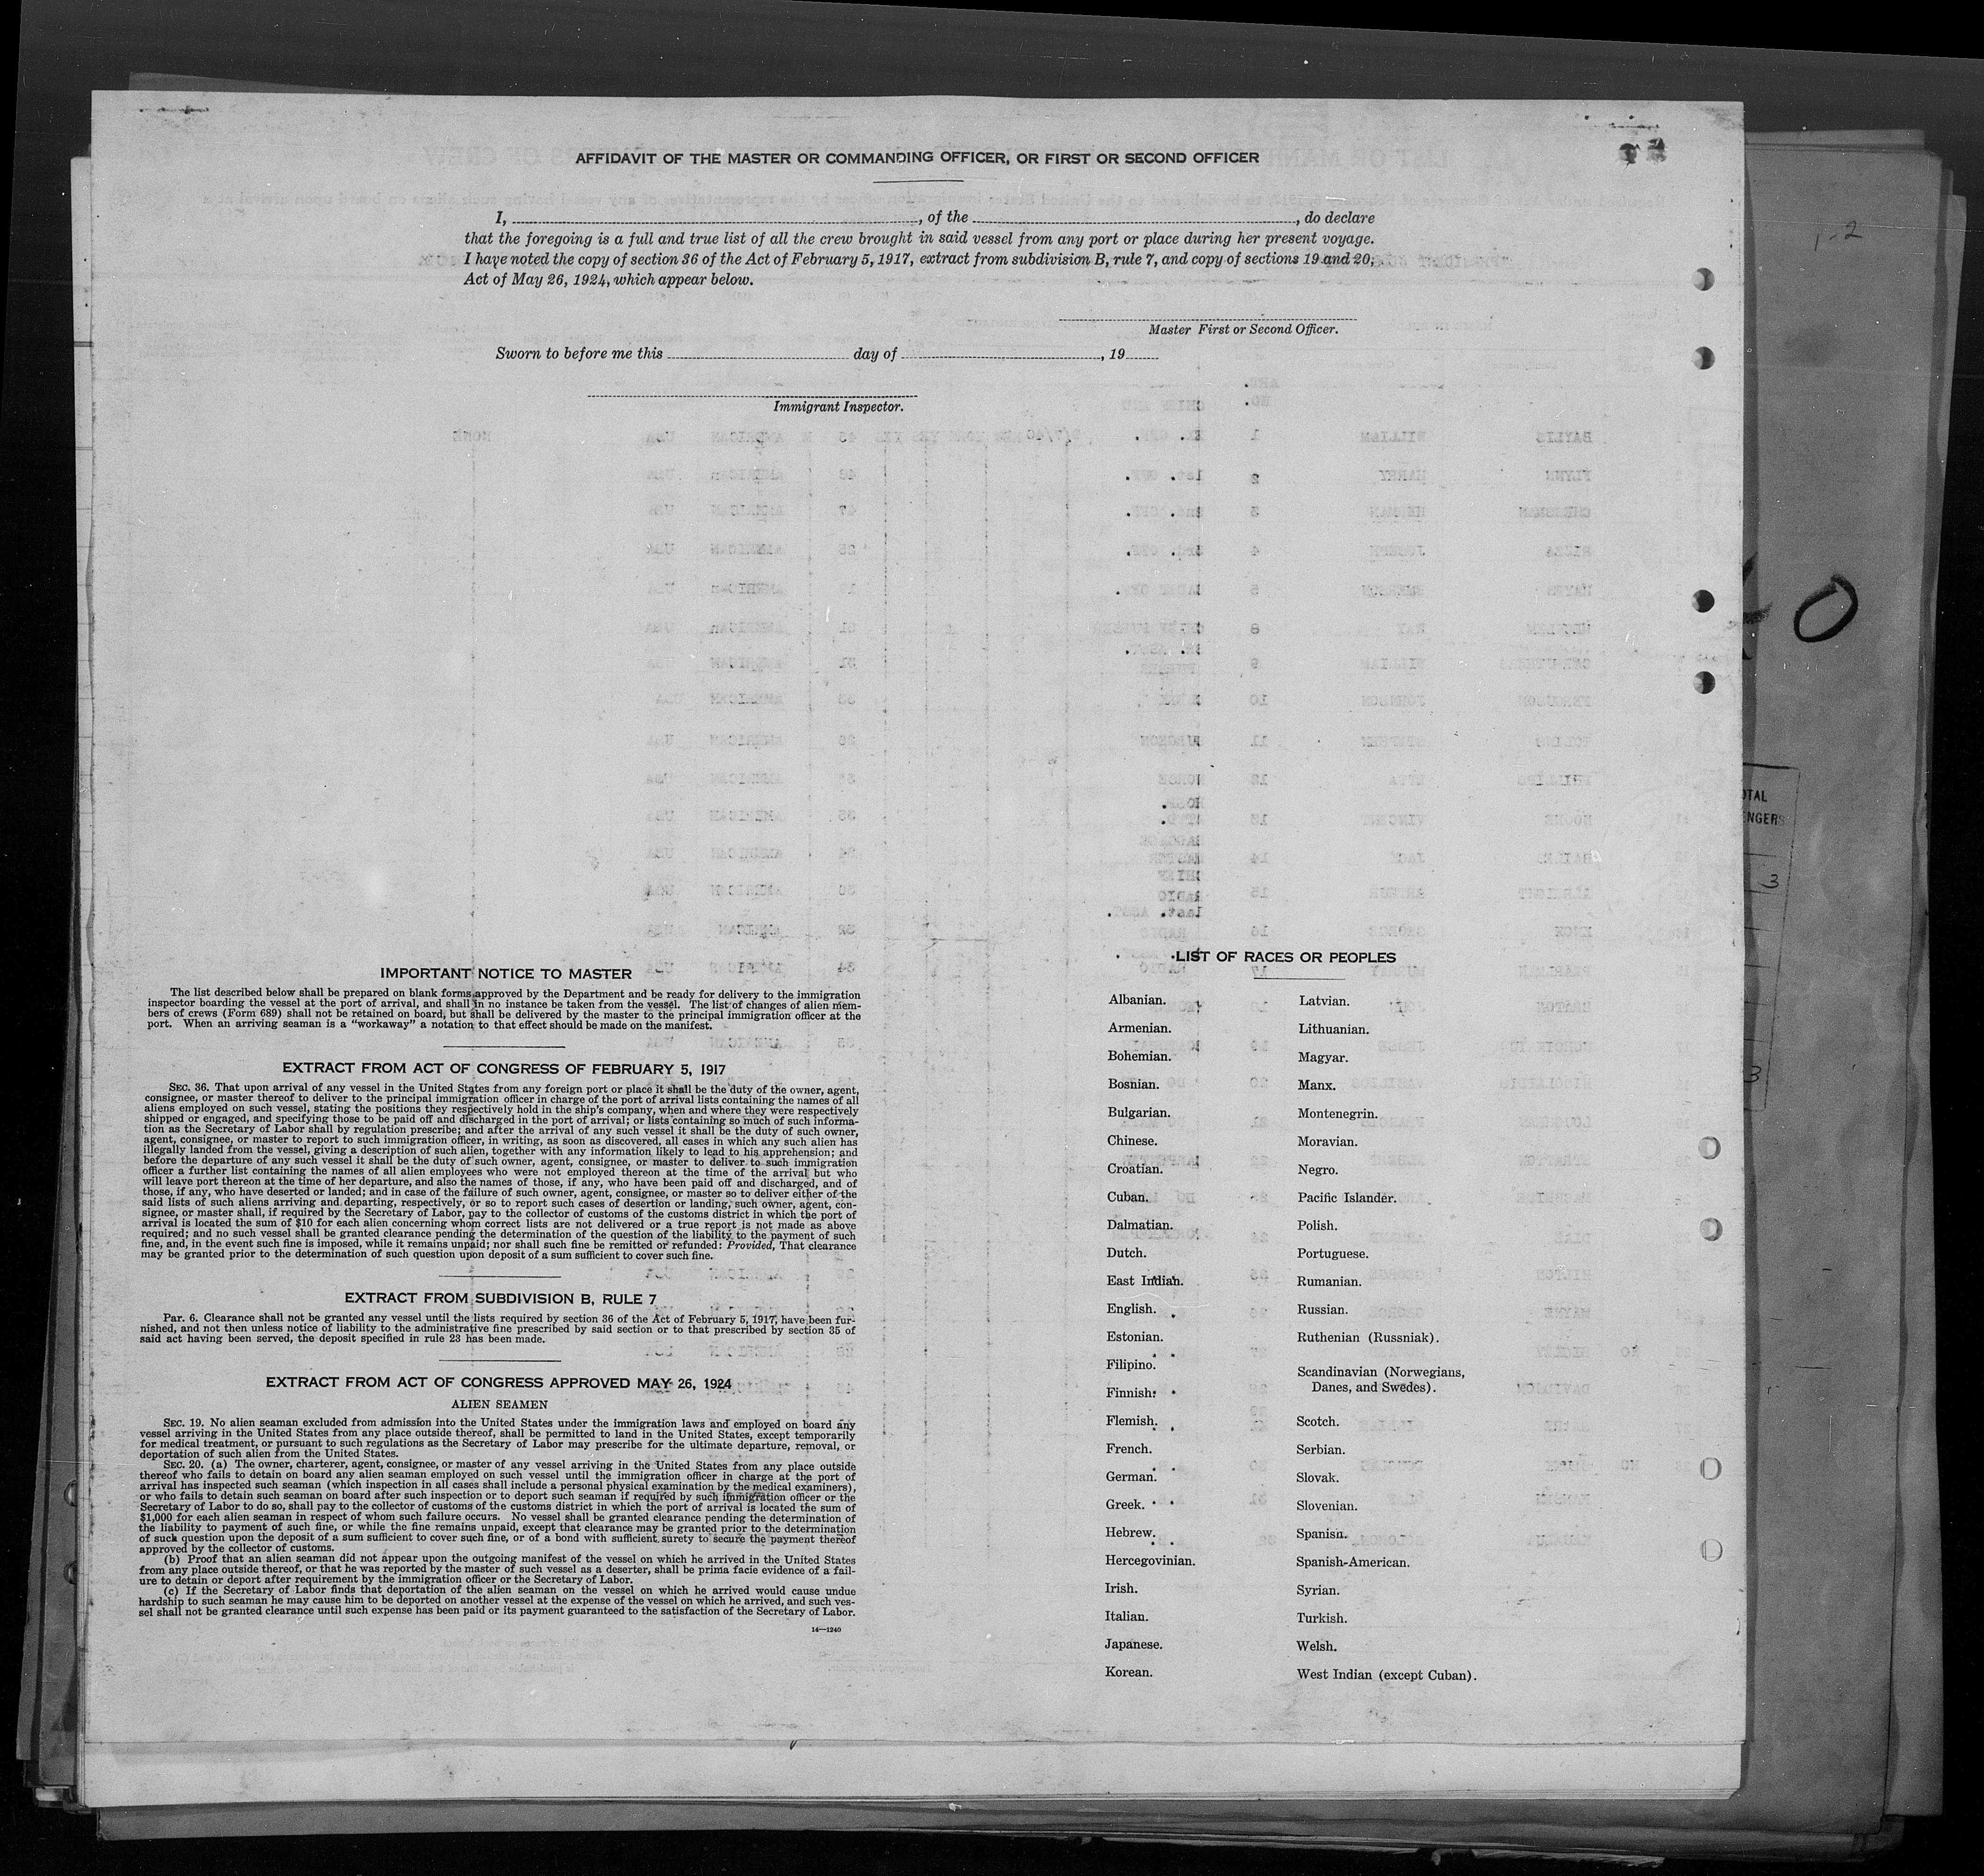 AFFIDAVIT OF THE MASTER OR COMMANDING OFFICER, OR FIRST OR SECOND OFFICER
I, , of the , do declare
that the foregoing is a full and true list of all the crew brought in said vessel from any port or place during her present voyage.
I have noted the copy of section 36 of the Act of February 5, 1917, extract from subdivision B, rule 7, and copy of sections 19 and 20,
Act of May 26, 1924, which appear below.
Master First or Second Officer.
Sworn to before me this day of , 19
Immigrant Inspector.
IMPORTANT NOTICE TO MASTER
The list described below shall be prepared on blank forms approved by the Department and be ready for delivery to the immigration
inspector boarding the vessel at the port of arrival, and shall in no instance be taken from the vessel. The list of changes of alien mem-
bers of crews (Form 689) shall not be retained on board, but shall be delivered by the master to the principal immigration officer at the
port. When an arriving seaman is a "workaway" a notation to that effect should be made on the manifest.
EXTRACT FROM ACT OF CONGRESS OF FEBRUARY 5, 1917
SEC. 36. That upon arrival of any vessel in the United States from any foreign port or place it shall be the duty of the owner, agent,
consignee, or master thereof to deliver to the principal immigration officer in charge of the port of arrival lists containing the names of all
aliens employed on such vessel, stating the positions they respectively hold in the ship's company, when and where they were respectively
shipped or engaged, and specifying those to be paid off and discharged in the port of arrival; or lists containing so much of such informa-
tion as the Secretary of Labor shall by regulation prescribe; and after the arrival of any such vessel it shall be the duty of such owner,
agent, consignee, or master to report to such immigration officer, in writing, as soon as discovered, all cases in which any such alien has
illegally landed from the vessel, giving a description of such alien, together with any information likely to lead to his apprehension; and
before the departure of any such vessel it shall be the duty of such owner, agent, consignee, or master to deliver to such immigration
officer a further list containing the names of all alien employees who were not employed thereon at the time of the arrival but who
will leave port thereon at the time of her departure, and also the names of those, if any, who have been paid off and discharged, and of
those, if any, who have deserted or landed; and in case of the failure of such owner, agent, consignee, or master so to deliver either of the
said lists of such aliens arriving and departing, respectively, or so to report such cases of desertion or landing, such owner, agent, con-
signee, or master shall, if required by the Secretary of Labor, pay to the collector of customs of the customs district in which the port of
arrival is located the sum of $10 for each alien concerning whom correct lists are not delivered or a true report is not made as above
required; and no such vessel shall be granted clearance pending the determination of the question of the liability to the payment of such
fine, and, in the event such fine is imposed, while it remains unpaid; nor shall such fine be remitted or refunded: Provided, That clearance
may be granted prior to the determination of such question upon deposit of a sum sufficient to cover such fine.
EXTRACT FROM SUBDIVISION B, RULE 7
Par. 6. Clearance shall not be granted any vessel until the lists required by section 36 of the Act of February 5, 1917, have been fur-
nished, and not then unless notice of liability to the administrative fine prescribed by said section or to that prescribed by section 35 of
said act having been served, the deposit specified in rule 23 has been made.
EXTRACT FROM ACT OF CONGRESS APPROVED MAY 26, 1924
ALIEN SEAMEN
SEC. 19. No alien seaman excluded from admission into the United States under the immigration laws and employed on board any
vessel arriving in the United States from any place outside thereof, shall be permitted to land in the United States, except temporarily
for medical treatment, or pursuant to such regulations as the Secretary of Labor may prescribe for the ultimate departure, removal, or
deportation of such alien from the United States.
SEC. 20. (a) The owner, charterer, agent, consignee, or master of any vessel arriving in the United States from any place outside
thereof who fails to detain on board any alien seaman employed on such vessel until the immigration officer in charge at the port of
arrival has inspected such seaman (which inspection in all cases shall include a personal physical examination by the medical examiners),
or who fails to detain such seaman on board after such inspection or to deport such seaman if required by such immigration officer or the
Secretary of Labor to do so, shall pay to the collector of customs of the customs district in which the port of arrival is located the sum of
$1,000 for each alien seaman in respect of whom such failure occurs. No vessel shall be granted clearance pending the determination of
the liability to payment of such fine, or while the fine remains unpaid, except that clearance may be granted prior to the determination
of such question upon the deposit of a sum sufficient to cover such fine, or of a bond with sufficient surety to secure the payment thereof
approved by the collector of customs.
(b) Proof that an alien seaman did not appear upon the outgoing manifest of the vessel on which he arrived in the United States
from any place outside thereof, or that he was reported by the master of such vessel as a deserter, shall be prima facie evidence of a fail-
ure to detain or deport after requirement by the immigration officer or the Secretary of Labor.
(c) If the Secretary of Labor finds that deportation of the alien seaman on the vessel on which he arrived would cause undue
hardship to such seaman he may cause him to be deported on another vessel at the expense of the vessel on which he arrived, and such ves-
sel shall not be granted clearance until such expense has been paid or its payment guaranteed to the satisfaction of the Secretary of Labor.
14—1240
LIST OF RACES OR PEOPLES
Albanian.
Armenian.
Bohemian.
Bosnian.
Bulgarian.
Chinese.
Croatian.
Cuban.
Dalmatian.
Dutch.
East Indian.
English.
Estonian.
Filipino.
Finnish.
Flemish.
French.
German.
Greek.
Hebrew.
Hercegovinian.
Irish.
Italian.
Japanese.
Korean.
Latvian.
Lithuanian.
Magyar.
Manx.
Montenegrin.
Moravian.
Negro.
Pacific Islander.
Polish.
Portuguese.
Rumanian.
Russian.
Ruthenian (Russniak).
Scandinavian (Norwegians,
Danes, and Swedes).
Scotch.
Serbian.
Slovak.
Slovenian.
Spanish.
Spanish-American.
Syrian.
Turkish.
Welsh.
West Indian (except Cuban).
1-2
0
3
3